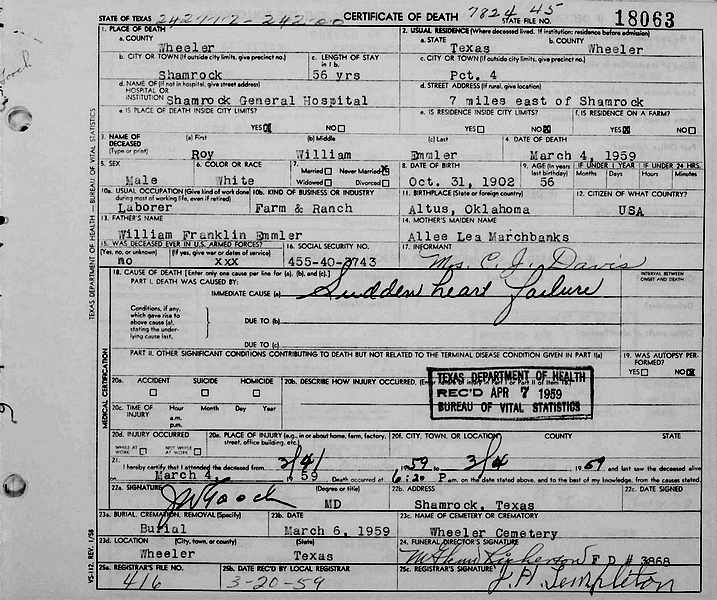 STATE OF TEXAS
CERTIFICATE OF DEATH 7824 45
STATE FILE NO. 18063
1. PLACE OF DEATH
a. COUNTY
Wheeler
2. USUAL RESIDENCE (Where deceased lived. If institution: residence before admission)
a. STATE b. COUNTY
Texas Wheeler
b. CITY OR TOWN (If outside city limits, give precinct no.) c. LENGTH OF STAY in 1 b.
Shamrock 56 yrs
c. CITY OR TOWN (If outside city limits, give precinct no.)
Pct. 4
d. NAME OF (If not in hospital, give street address) HOSPITAL OR INSTITUTION
Shamrock General Hospital
d. STREET ADDRESS (If rural, give location)
7 miles east of Shamrock
e. IS PLACE OF DEATH INSIDE CITY LIMITS?
YES NO
e. IS RESIDENCE INSIDE CITY LIMITS?
YES NO
f. IS RESIDENCE ON A FARM?
YES NO
3. NAME OF DECEASED (Type or print)
(a) First (b) Middle (c) Last
Roy William Emmler
4. DATE OF DEATH
March 4, 1959
5. SEX
Male
6. COLOR OR RACE
White
7. Married Never Married
Widowed Divorced
8. DATE OF BIRTH
Oct. 31, 1902
9. AGE (In years last birthday)
56
IF UNDER 1 YEAR IF UNDER 24 HRS.
Months Days Hours Minutes
10a. USUAL OCCUPATION (Give kind of work done during most of working life, even if retired)
Laborer
10b. KIND OF BUSINESS OR INDUSTRY
Farm & Ranch
11. BIRTHPLACE (State or foreign country)
Altus, Oklahoma
12. CITIZEN OF WHAT COUNTRY?
USA
13. FATHER'S NAME
William Franklin Emmler
14. MOTHER'S MAIDEN NAME
Allee Lea Marchbanks
15. WAS DECEASED EVER IN U.S. ARMED FORCES?
(Yes, no, or unknown) (If yes, give war or dates of service)
no xxx
16. SOCIAL SECURITY NO.
455-40-3743
17. INFORMANT
Mrs. C. J. Davis
18. CAUSE OF DEATH [Enter only one cause per line for (a), (b), and (c).]
INTERVAL BETWEEN ONSET AND DEATH
PART I. DEATH WAS CAUSED BY:
IMMEDIATE CAUSE (a) Sudden heart failure
Conditions, if any, which gave rise to above cause (a), stating the underlying cause last.
DUE TO (b)
DUE TO (c)
PART II. OTHER SIGNIFICANT CONDITIONS CONTRIBUTING TO DEATH BUT NOT RELATED TO THE TERMINAL DISEASE CONDITION GIVEN IN PART I(a)
19. WAS AUTOPSY PERFORMED?
YES NO
20a. ACCIDENT SUICIDE HOMICIDE
20b. DESCRIBE HOW INJURY OCCURRED.
TEXAS DEPARTMENT OF HEALTH
REC'D APR 7 1959
BUREAU OF VITAL STATISTICS
20c. TIME OF INJURY
Hour Month Day Year
a.m.
p.m.
20d. INJURY OCCURRED
WHILE AT WORK NOT WHILE AT WORK
20e. PLACE OF INJURY (e.g., in or about home, farm, factory, street, office building, etc.)
20f. CITY, TOWN, OR LOCATION COUNTY STATE
21. I hereby certify that I attended the deceased from 3/4 1959 to 3/4 1959 and last saw the deceased alive
on March 4 1959 Death occurred at 6:20 P.m. on the date stated above, and to the best of my knowledge, from the causes stated.
22a. SIGNATURE (Degree or title)
MD
22b. ADDRESS
Shamrock, Texas
22c. DATE SIGNED
23a. BURIAL, CREMATION, REMOVAL (Specify)
Burial
23b. DATE
March 6, 1959
23c. NAME OF CEMETERY OR CREMATORY
Wheeler Cemetery
23d. LOCATION (City, town, or county) (State)
Wheeler Texas
24. FUNERAL DIRECTOR'S SIGNATURE
F D # 3868
25a. REGISTRAR'S FILE NO.
416
25b. DATE REC'D BY LOCAL REGISTRAR
3-20-59
25c. REGISTRAR'S SIGNATURE
J.H. Templeton
TEXAS DEPARTMENT OF HEALTH — BUREAU OF VITAL STATISTICS
MEDICAL CERTIFICATION
VS-112, REV. 1/58